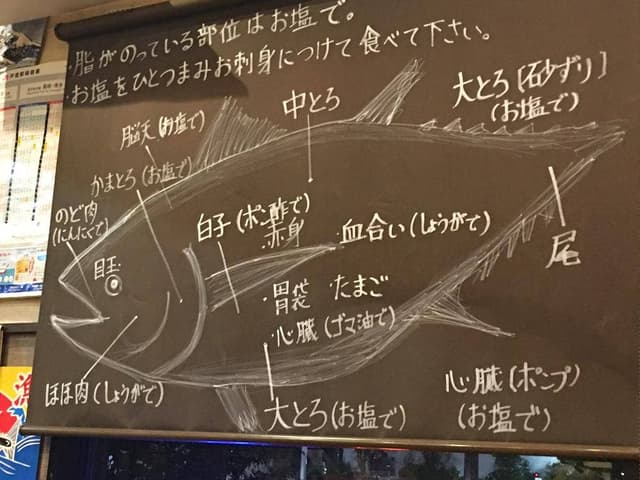 ・脂がのっている部位はお塩で。
・お塩をひとつまみお刺身につけて食べて下さい。
大とろ[石砂ずり]
(お塩で)
中とろ
脳天(お塩で)
かまとろ(お塩で)
のど肉
(にんにくで)
目玉
白子(ポン酢で)
赤身
血合い(しょうがで)
尾
・胃袋 たまご
・心臓(ゴマ油で)
ほほ肉(しょうがで)
大とろ(お塩で)
心臓(ポンプ)
(お塩で)